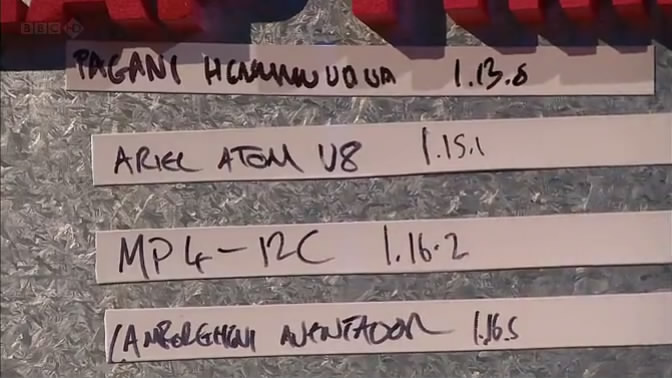 BBC HD
PAGANI HUMMNUOUA 1.13.8
ARIEL ATOM V8 1.15.1
MP4-12C 1.16.2
LAMBORGHINI AVENTADOR 1.16.5